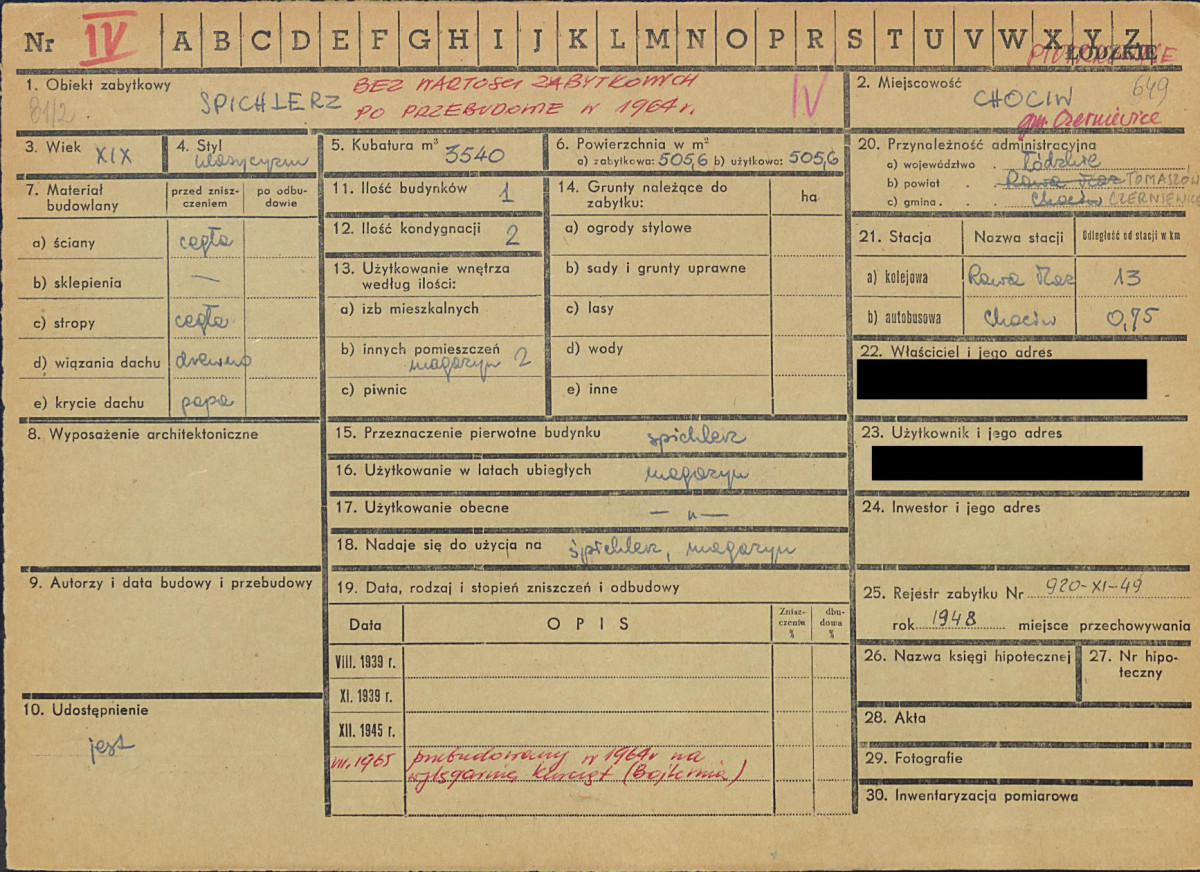 Nr IV A B C D E F G H I J K L M N O P R S T U V W X Y Z
ŁÓDZKIE
1. Obiekt zabytkowy SPICHLERZ
81/2
BEZ WARTOŚCI ZABYTKOWYCH
PO PRZEBUDOWIE W 1964 r.
IV
2. Miejscowość 649
CHOCIW
gm. Czerniewice
3. Wiek XIX
4. Styl klasycyzm
5. Kubatura m³ 3540
6. Powierzchnia w m²
a) zabytkowa: 505,6 b) użytkowa: 505,6
7. Materiał budowlany
przed zniszczeniem
po odbudowie
a) ściany cegła
b) sklepienia —
c) stropy cegła
d) wiązania dachu drewno
e) krycie dachu papa
8. Wyposażenie architektoniczne
9. Autorzy i data budowy i przebudowy
10. Udostępnienie
jest
11. Ilość budynków 1
12. Ilość kondygnacji 2
13. Użytkowanie wnętrza
według ilości:
a) izb mieszkalnych
b) innych pomieszczeń
magazyn 2
c) piwnic
14. Grunty należące do
zabytku: ha
a) ogrody stylowe
b) sady i grunty uprawne
c) lasy
d) wody
e) inne
15. Przeznaczenie pierwotne budynku spichlerz
16. Użytkowanie w latach ubiegłych magazyn
17. Użytkowanie obecne — „ —
18. Nadaje się do użycia na śpichlerz, magazyn
19. Data, rodzaj i stopień zniszczeń i odbudowy
Data OPIS Zniszczenia % dbudowa %
VIII. 1939 r.
XI. 1939 r.
XII. 1945 r.
VII. 1965 przebudowany w 1964 r na
wylęgarnię kurcząt (Bojlernia)
20. Przynależność administracyjna
a) województwo . Łódzkie
b) powiat . Rawa Maz TOMASZÓW
c) gmina . . Chociw CZERNIEWICE
21. Stacja Nazwa stacji Odległość od stacji w km
a) kolejowa Rawa Maz 13
b) autobusowa Chociw 0,75
22. Właściciel i jego adres
23. Użytkownik i jego adres
24. Inwestor i jego adres
25. Rejestr zabytku Nr 920-XI-49
rok 1948 miejsce przechowywania
26. Nazwa księgi hipotecznej
27. Nr hipoteczny
28. Akta
29. Fotografie
30. Inwentaryzacja pomiarowa